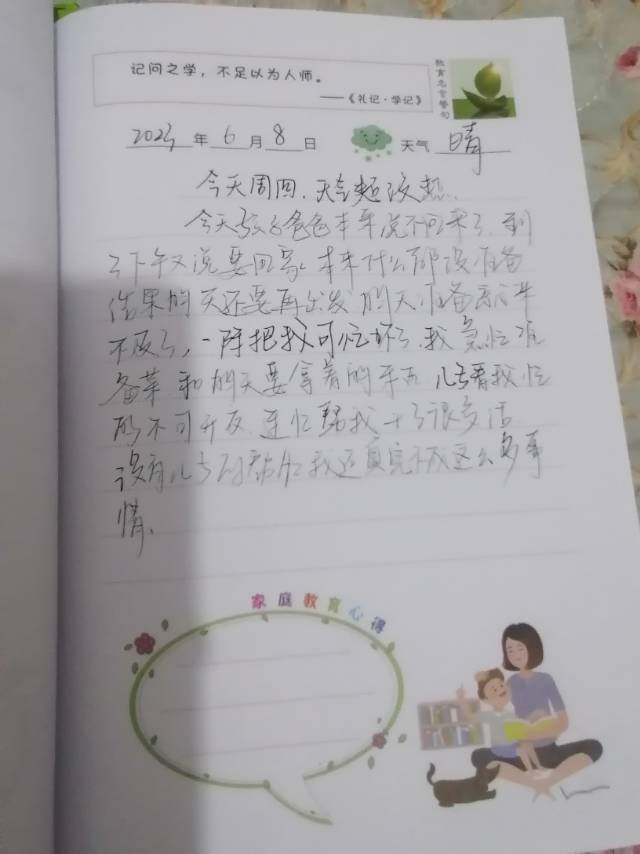 记问之学，不足以为人师。
——《礼记·学记》
教育名言警句
2023年6月8日 天气 晴
今天周四，天气超级热。
今天孩子爸爸本来说不回来了，到
了下午又说要回家，本来什么都没准备
结果明天还要再出发，明天准备都来
不及了，一阵把我可忙坏了，我急忙准
备菜和明天要拿着的东西，儿子看我忙
的不可开交，连忙帮我干了很多活
没有儿子的帮忙我还真完不成这么多事
情。
家庭教育心得